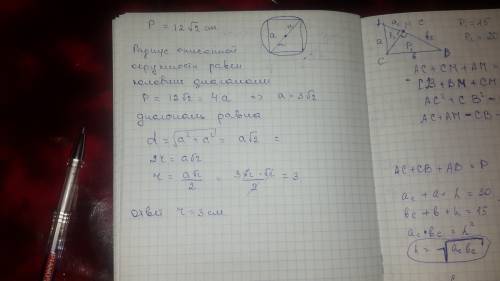 P = 12√2 см
Радиус описанной
окружности равен
половине диагонали
P = 12√2 = 4a => a = 3√2
диагональ равна
d = √(a² + a²) = a√2 =
2r = a√2
r = a√2/2 = 3√2·√2/2 = 3
ответ r = 3 см
a
AC + CM + AM =
CB + BM + CM
AC² + CB² =
AC + AM = CB
AC + CB + AB = P
a_c + a + h = 20
b_c + b + h = 15
a_c · b_c = h²
h = √(a_c b_c)